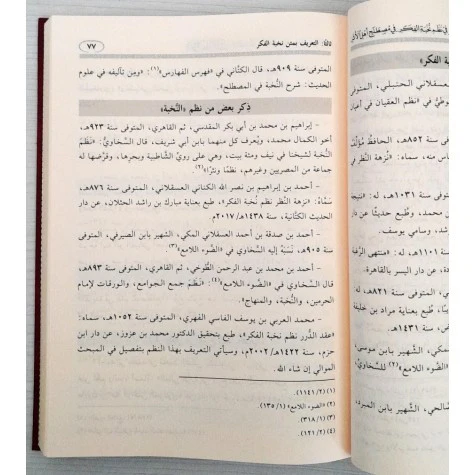 ثالثًا: التعريف بمتن نخبة الفكر
٧٧
المتوفى سنة ٩٠٩هـ، قال الكتّاني في «فهرس الفهارس»(١): «ومن تآليفه في علوم
الحديث: شرح النُّخبة في المصطلح».
ذِكر بعض من نظم «النُّخبة»
– إبراهيم بن محمد بن أبي بكر المقدسي، ثم القاهري، المتوفى سنة ٩٢٣هـ،
أخو الكمال محمد، ويُعرف كل منهما بابن أبي شريف، قال السَّخاوي: «نَظَمَ
النُّخبة لشيخنا في نيف ومئة بيت، وهي على رويِّ الشاطبية وبحرها، وقرَّضها له
جماعة من المصريين وغيرهم، نظمًا ونثرًا»(٢).
– أحمد بن إبراهيم بن نصر الله الكناني العسقلاني، المتوفى سنة ٨٧٦هـ،
سَمَّاهُ: «نزهة النظر نظم نخبة الفكر»، طُبع بعناية مبارك بن راشد الحثلان، عن دار
الحديث الكتَّانية، سنة ١٤٣٨هـ/٢٠١٧م.
– أحمد بن صدقة بن أحمد العسقلاني المكي، الشهير بابن الصيرفي، المتوفى
سنة ٩٠٥هـ، نَسَبَهُ إليه السَّخاوي في «الضَّوء اللامع»(٣).
– أحمد بن محمد بن عبد الرحمن الطُّوخي، ثم القاهري، المتوفى سنة ٨٩٣هـ،
قال السَّخاوي في «الضوء اللامع»(٤): «نَظَمَ جمع الجوامع، والورقات لإمام
الحرمين، والنُّخبة، والمنهاج».
– محمد العربي بن يوسف الفاسي الفهري، المتوفى سنة ١٠٥٢هـ، سماه:
«عقد الدُّرر نظم نخبة الفكر»، طُبع بتحقيق الدكتور محمد بن عزوز، عن دار ابن
حزم، سنة ١٤٢٢هـ/٢٠٠٢م، وسيأتي التعريف بهذا النظم بتفصيل في المبحث
الموالي إن شاء الله.
(١) (٢/ ١١٤١).
(٢) «الضوء اللامع» (١/ ١٣٥).
(٣) (١/ ٣١٨).
(٤) (٢/ ١٢١).
العسقلاني الحنبلي، المتوفى
«نظم العقيان في أعيان
سنة ٨٥٢هـ، الحافظُ مُؤلِّف
سماه: «نزهة النظر في
سنة ١٠٣١هـ، له:
محمد، وطُبع حديثًا عن دار
وسامي يوسف.
سنة ١١٠١هـ، له: «منتهى الرغبة
عن دار اليسر بالقاهرة.
طُبع بعناية مراد بن خليفة
سنة ١٤٣١هـ.
المكي، الشهير بابن موسى،
«الضَّوء اللامع»(٢) للسَّخاوي
الشهير بابن المبرد،